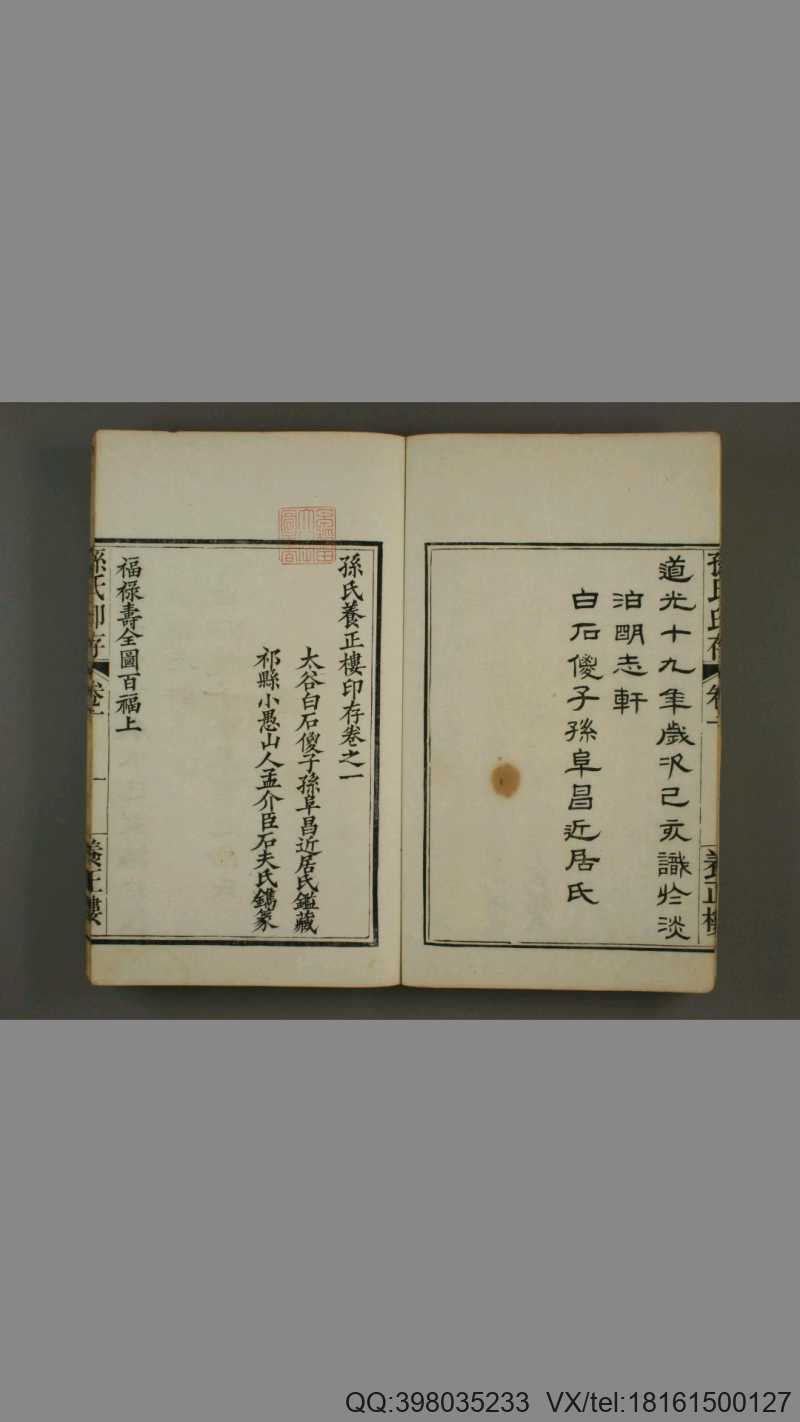 道光十九年歲次己亥識於淡
泊明志軒
白石傻子孫阜昌近居氏
孫氏養正樓印存卷之一
太谷白石傻子孫阜昌近居氏鑑藏
祁縣小愚山人孟介臣石夫氏鐫篆
福禄壽全圖百福上
孫氏印存
卷一
一
養正樓
QQ:398035233 VX/tel:18161500127